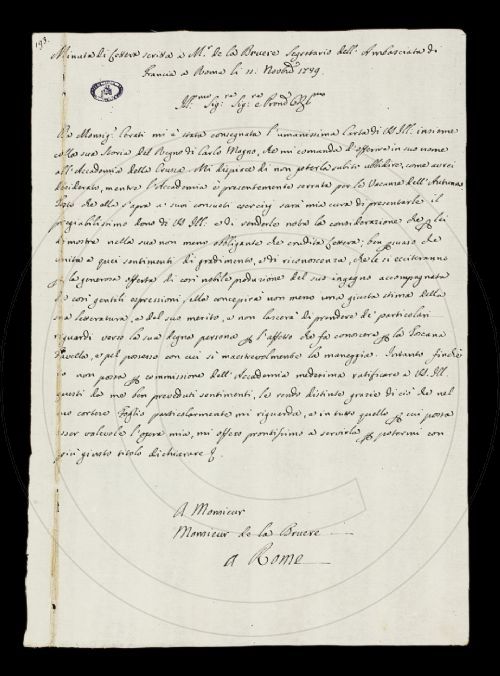 193.
Minuta di Lettera scritta a M.r de la Bruere Segretario dell'Ambasciata di
Francia a Roma li 11. Novbre 1749.
Ill.mo Sig.r Sig.r e Pron. Col.mo
Da Monsig.r Cerati mi è stata consegnata l'umanissima Carta di VS Ill. insieme
colla sua Storia del Regno di Carlo Magno, che mi comanda d'offerire in suo nome
all'Accademia della Crusca. Mi dispiace di non poterla subito ubbidire, come avrei
desiderato, mentre l'Accademia è presentemente serrata per le Vacanze dell'Autunno
Tosto che ella s'apra a' suoi consueti esercizj sarà mia cura di presentarle il
pregiabilissimo dono di VS Ill. e di renderle nota la considerazione che p lei
dimostra nella sua non meno obbligante che erudita Lettera; ben sicuro che
unita a quei sentimenti di gradimento, e di riconoscenza, che le si ecciteranno
p la generosa offerta di così nobile produzione del suo ingegno accompagnata
da così gentili espressioni, ella concepirà non meno una giusta stima della
sua letteratura, e del suo merito, e non lascerà di prendere de' particolari
riguardi verso la sua degna persona p l'affetto che fa conoscere p la Toscana
Favella, e pel possesso con cui sì maestrevolmente la maneggia. Intanto finchè
io non possa p commissione dell'Accademia medesima ratificare a VS. Ill.
questi da me ben preveduti sentimenti, le rendo distinte grazie di ciò che nel
suo cortese Foglio particolarmente mi riguarda, e in tutto quello p cui possa
esser valevole l'opera mia, mi offero prontissimo a servirla p potermi con
più giusto titolo dichiarare
A Monsieur
Monsieur de la Bruere
a Rome